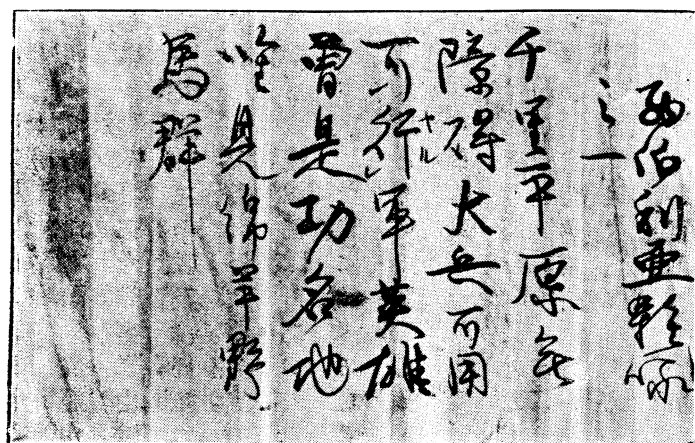 西伯利亜雑咏
之一
千里平原無
障碍大兵可用
可行軍英雄
曽是功名地
唯見綿羊野
馬群